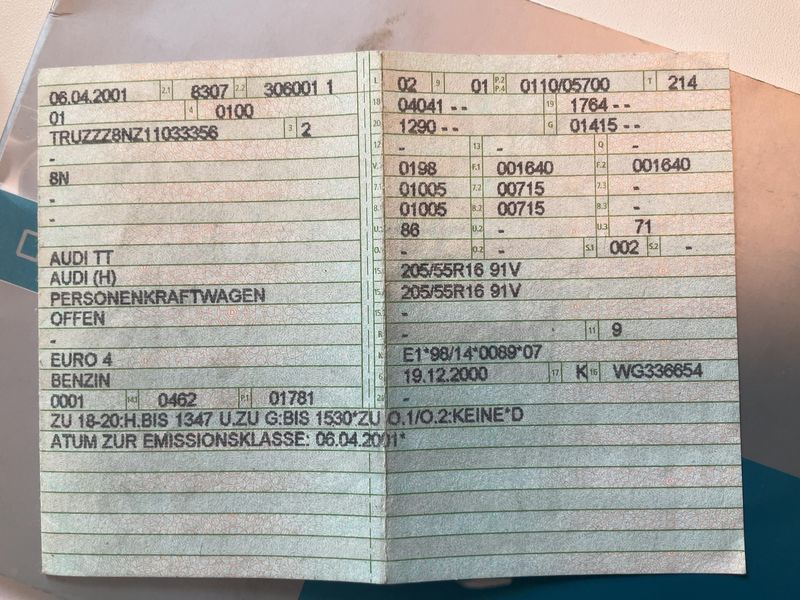 06.04.2001 2.1 8307 2.2 306001 1
01 4 0100
TRUZZZ8NZ11033356 3 2
-
8N
-
-
AUDI TT
AUDI (H)
PERSONENKRAFTWAGEN
OFFEN
-
EURO 4
BENZIN
0001 14.1 0462 P.1 01781
L 02 9 01 P.2 P.4 0110/05700 T 214
18 04041 - - 19 1764 - -
20 1290 - - G 01415 - -
12 - 13 - Q -
V. 0198 F.1 001640 F.2 001640
7.1 01005 7.2 00715 7.3 -
8.1 01005 8.2 00715 8.3 -
U.1 86 U.2 - U.3 71
O.1 - O.2 - S.1 002 S.2 -
15.1 205/55R16 91V
15.2 205/55R16 91V
15.3 -
R - 11 9
K E1*98/14*0089*07
6 19.12.2000 17 K 16 WG336654
21 -
ZU 18-20:H.BIS 1347 U.ZU G:BIS 1530*ZU O.1/O.2:KEINE*D
ATUM ZUR EMISSIONSKLASSE: 06.04.2001*